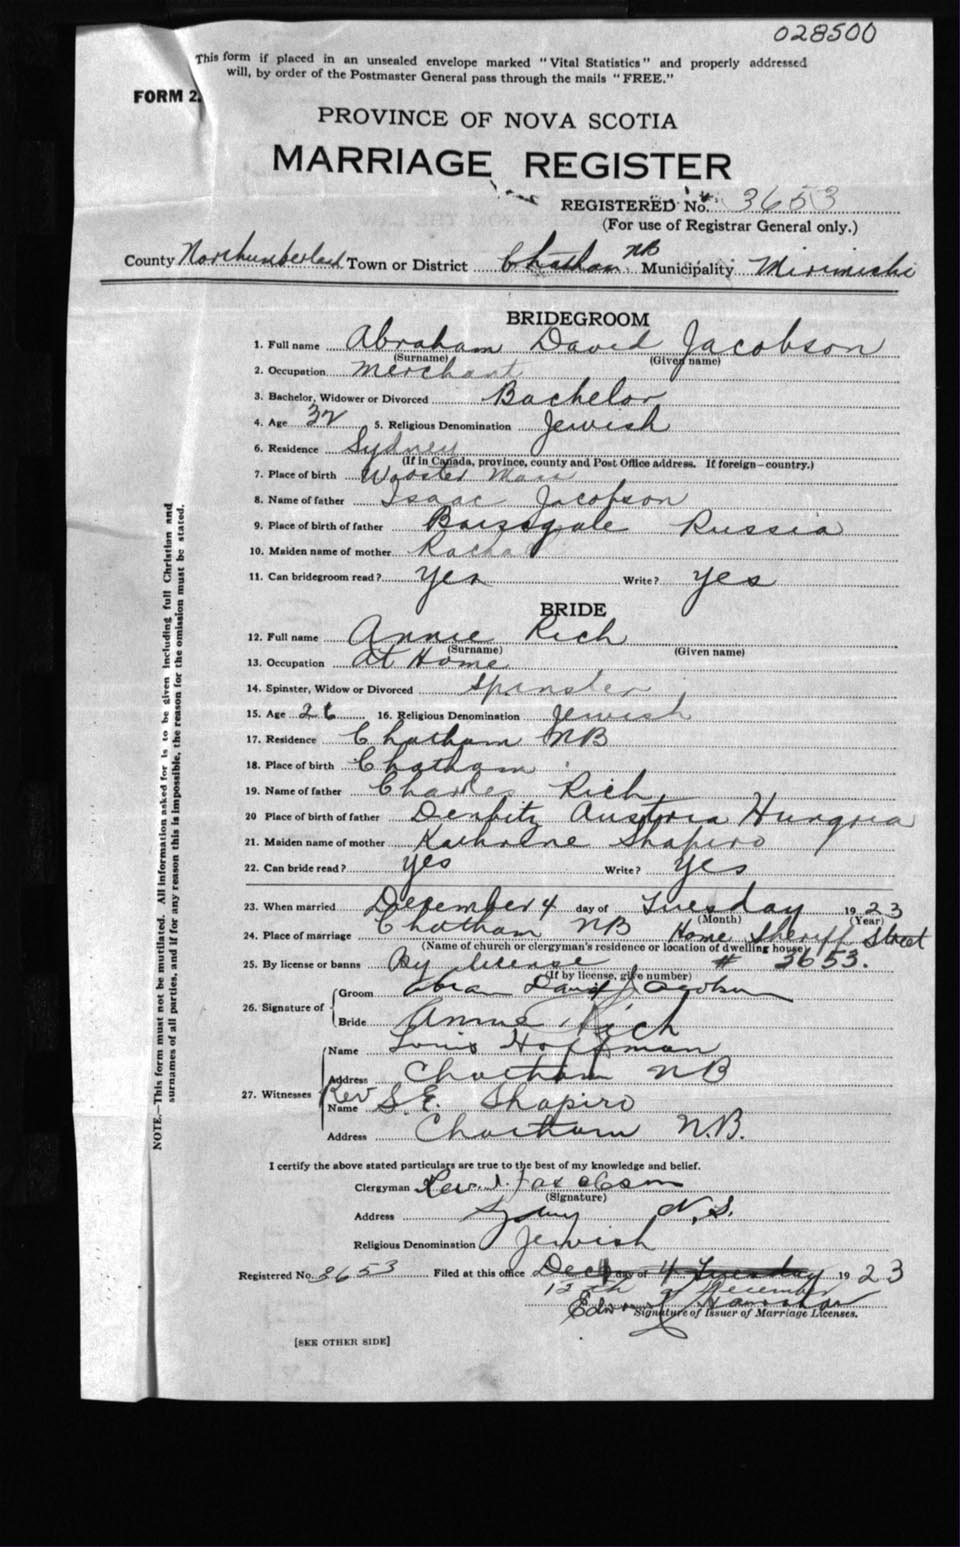 028500
This form if placed in an unsealed envelope marked "Vital Statistics" and properly addressed
will, by order of the Postmaster General pass through the mails "FREE."
FORM 2.
PROVINCE OF NOVA SCOTIA
MARRIAGE REGISTER
REGISTERED No. 3653
(For use of Registrar General only.)
County Northumberland Town or District Chatham NB Municipality Mirimichi
BRIDEGROOM
1. Full name Abraham David Jacobson
(Surname) (Given name)
2. Occupation Merchant
3. Bachelor, Widower or Divorced Bachelor
4. Age 32 5. Religious Denomination Jewish
6. Residence Sydney
(If in Canada, province, county and Post Office address. If foreign—country.)
7. Place of birth Wooster Mass
8. Name of father Isaac Jacobson
9. Place of birth of father Russia
10. Maiden name of mother
11. Can bridegroom read? Yes Write? Yes
BRIDE
12. Full name Annie Rich
(Surname) (Given name)
13. Occupation at Home
14. Spinster, Widow or Divorced Spinster
15. Age 26 16. Religious Denomination Jewish
17. Residence Chatham NB
18. Place of birth Chatham
19. Name of father Charles Rich
20 Place of birth of father Austria Hungria
21. Maiden name of mother Kathrene Shapiro
22. Can bride read? yes Write? yes
23. When married December 4 day of Tuesday 1923
(Month) (Year)
24. Place of marriage Chatham NB Home Sheriff Street
(Name of church or clergyman's residence or location of dwelling house)
25. By license or banns By license # 3653.
(If by license, give number)
26. Signature of
Groom Abram David Jacobson
Bride Annie Rich
27. Witnesses
Name Louis Hoffman
Address Chatham NB
Name Rev S. E. Shapiro
Address Chatham N.B.
I certify the above stated particulars are true to the best of my knowledge and belief.
Clergyman Rev. I. Jacobson
(Signature)
Address Sydney N.S.
Religious Denomination Jewish
Registered No. 3653 Filed at this office Dec 4 day of 4 Tuesday 1923
12th of December
Signature of Issuer of Marriage Licenses.
[SEE OTHER SIDE]
NOTE.—This form must not be mutilated. All information asked for is to be given including full Christian and
surnames of all parties, and if for any reason this is impossible, the reason for the omission must be stated.